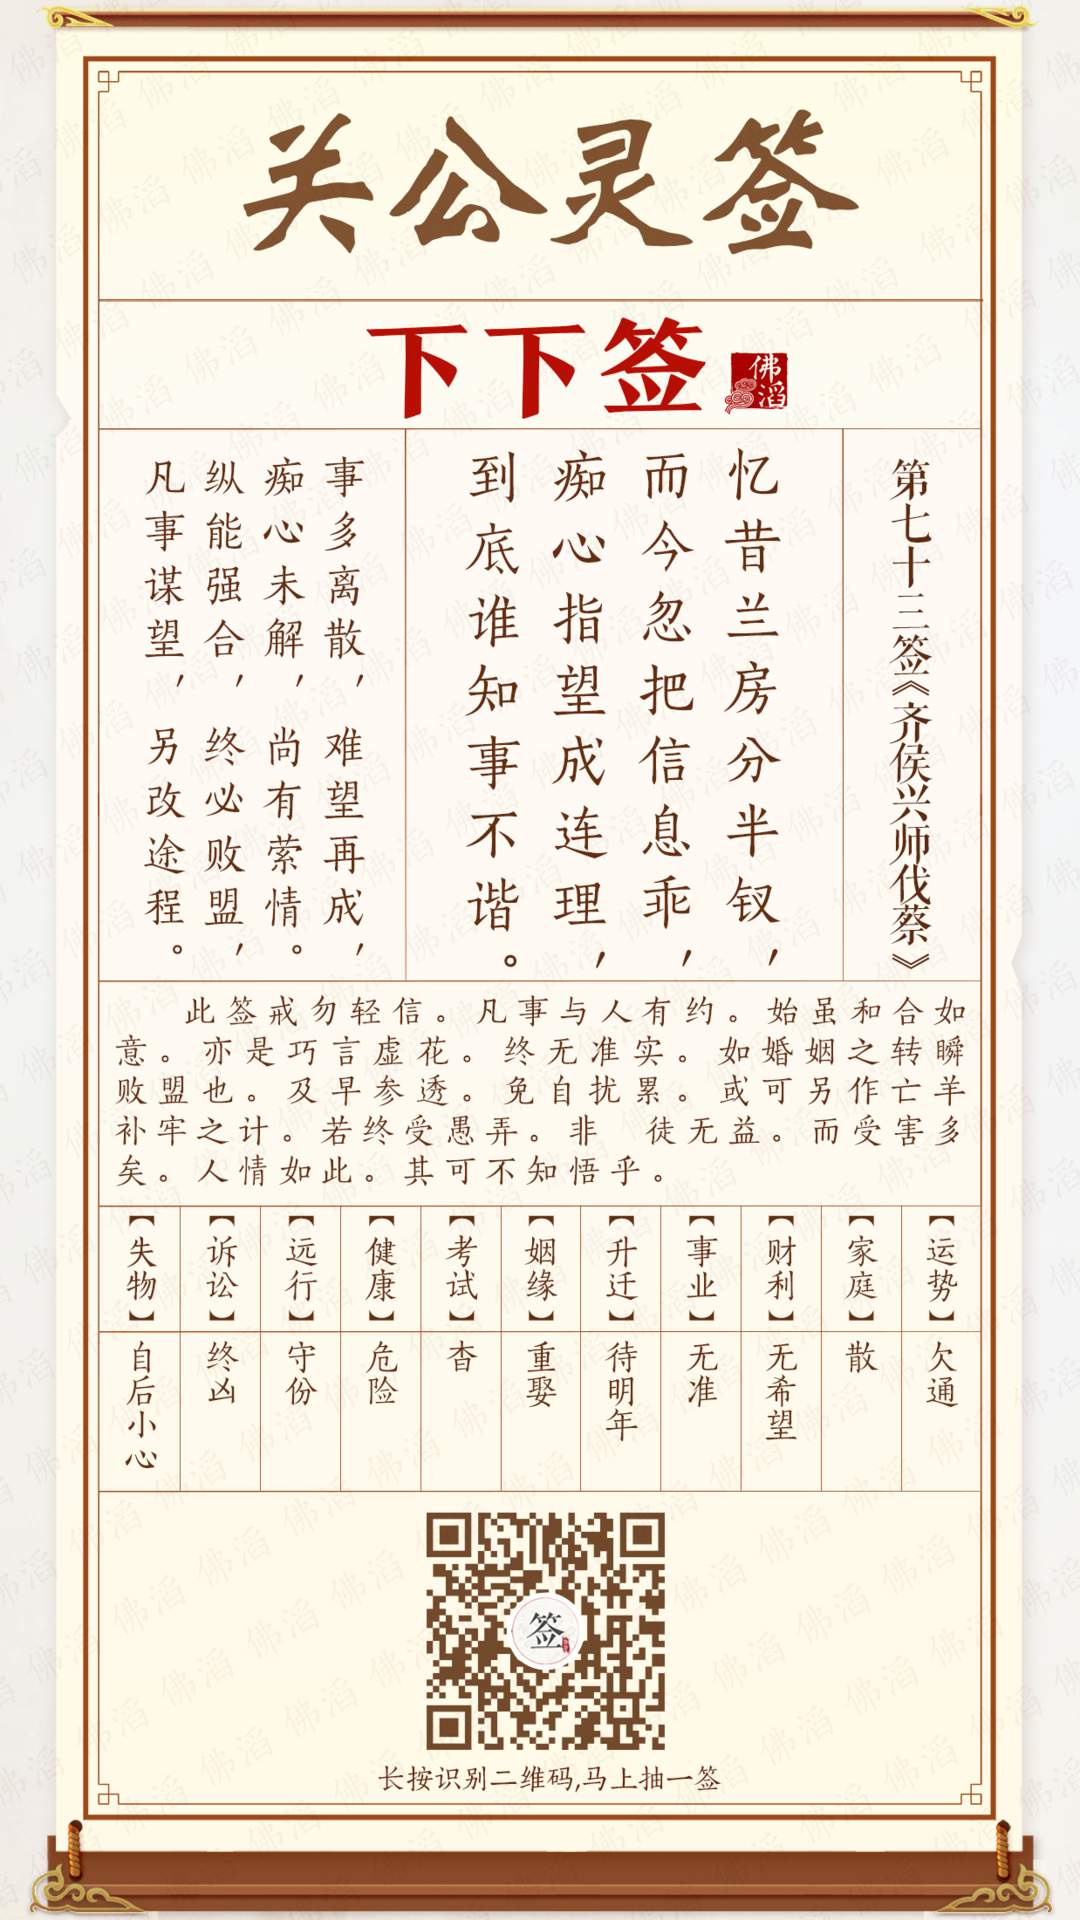 关公灵签
下下签
佛滔
第七十三签《齐侯兴师伐蔡》
忆昔兰房分半钗，
而今忽把信息乖，
痴心指望成连理，
到底谁知事不谐。
事多离散，难望再成，
痴心未解，尚有萦情。
纵能强合，终必败盟，
凡事谋望，另改途程。
此签戒勿轻信。凡事与人有约。始虽和合如
意。亦是巧言虚花。终无准实。如婚姻之转瞬
败盟也。及早参透。免自扰累。或可另作亡羊
补牢之计。若终受愚弄。非　徒无益。而受害多
矣。人情如此。其可不知悟乎。
【运势】
欠通
【家庭】
散
【财利】
无希望
【事业】
无准
【升迁】
待明年
【姻缘】
重娶
【考试】
杳
【健康】
危险
【远行】
守份
【诉讼】
终凶
【失物】
自后小心
签
长按识别二维码,马上抽一签